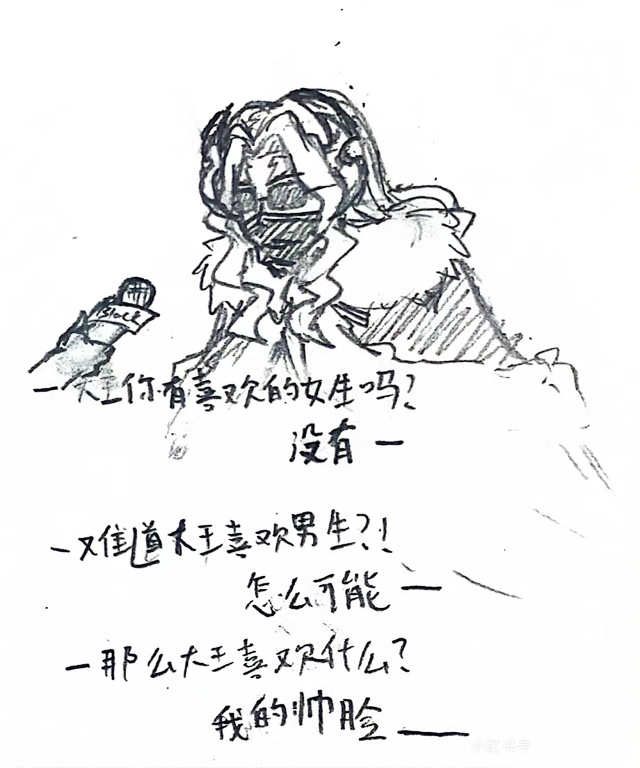 Block
一大王你有喜欢的女生吗?
没有一
一难道大王喜欢男生?!
怎么可能一
一那么大王喜欢什么?
我的帅脸——
小红书号